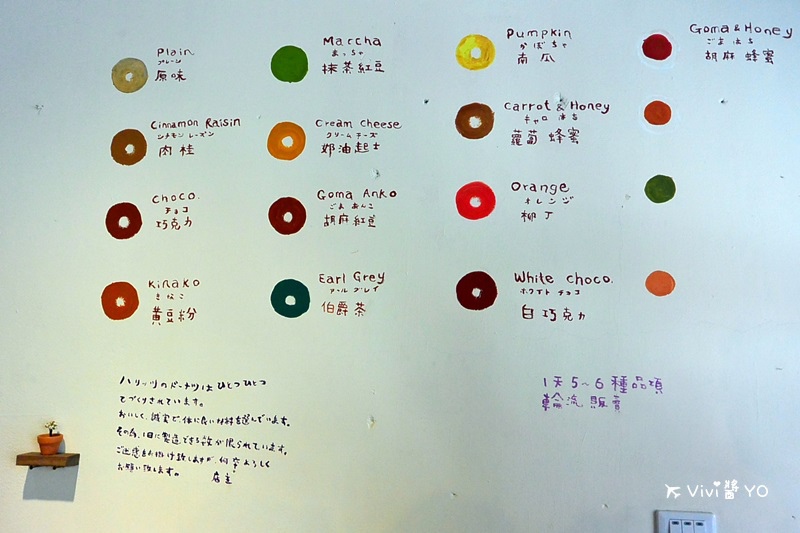 Plain
プレーン
原味
Marcha
まっちゃ
抹茶紅豆
Pumpkin
かぼちゃ
南瓜
Goma & Honey
ごま はち
胡麻 蜂蜜
Cinnamon Raisin
シナモン レーズン
肉桂
Cream Cheese
クリーム チーズ
奶油起士
Carrot & Honey
キャロ はち
蘿蔔 蜂蜜
Choco.
チョコ
巧克力
Goma Anko
ごま あんこ
胡麻紅豆
Orange
オレンジ
柳丁
Kinako
きなこ
黃豆粉
Earl Grey
アール グレイ
伯爵茶
White choco.
ホワイト チョコ
白巧克力
ハリッツのドーナツはひとつひとつ
てづくりされています。
おいしく、誠実で、体に良い材料を選んでいます。
その為、1日に製造できる数が限られています。
ご迷惑をお掛け致しますが、何卒よろしく
お願い致します。
店主
1天5~6種品項
輪流 販賣
Vivi醬YO